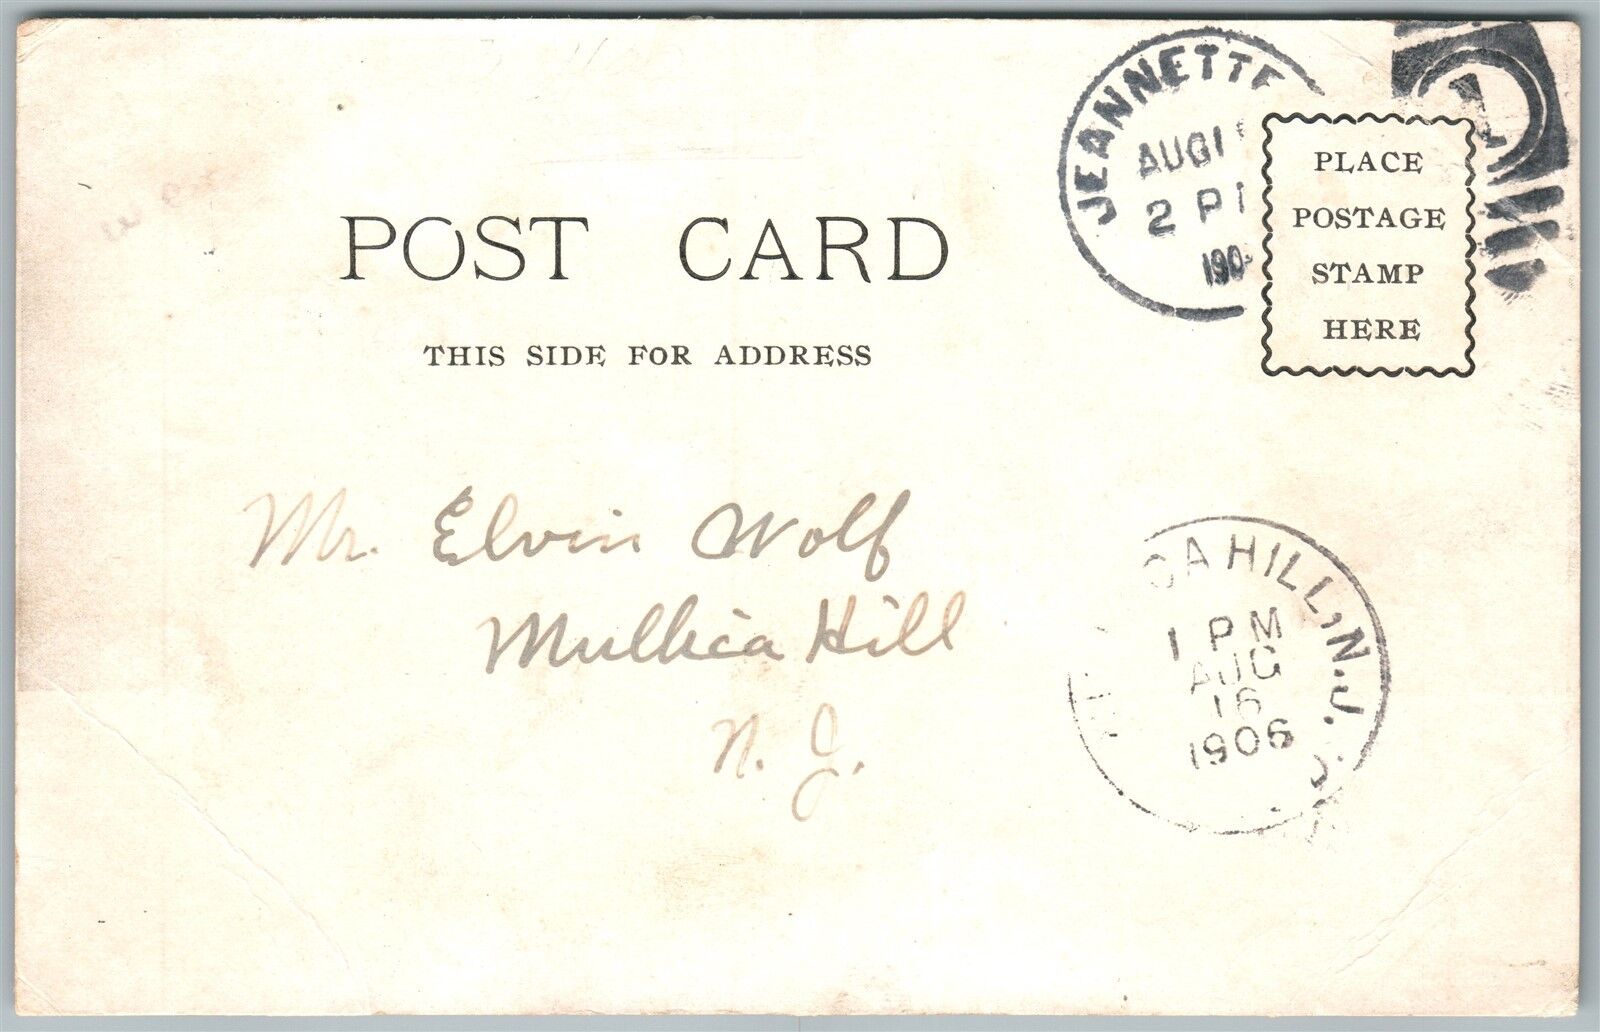 JEANNETTE
AUG 1
2 P
190
PLACE
POSTAGE
STAMP
HERE
POST CARD
THIS SIDE FOR ADDRESS
Mr. Elvin Wolf
Mullica Hill
N. J.
CA HILL, N.J.
1 PM
AUG
16
1906